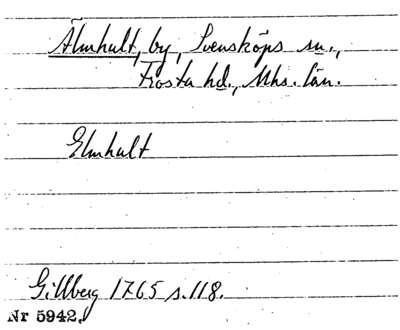 Älmhult, by, Svensköps sn.,
Frosta hd., Mhs. län.
Elmhult
Gillberg 1765 s.118.
Nr 5942.